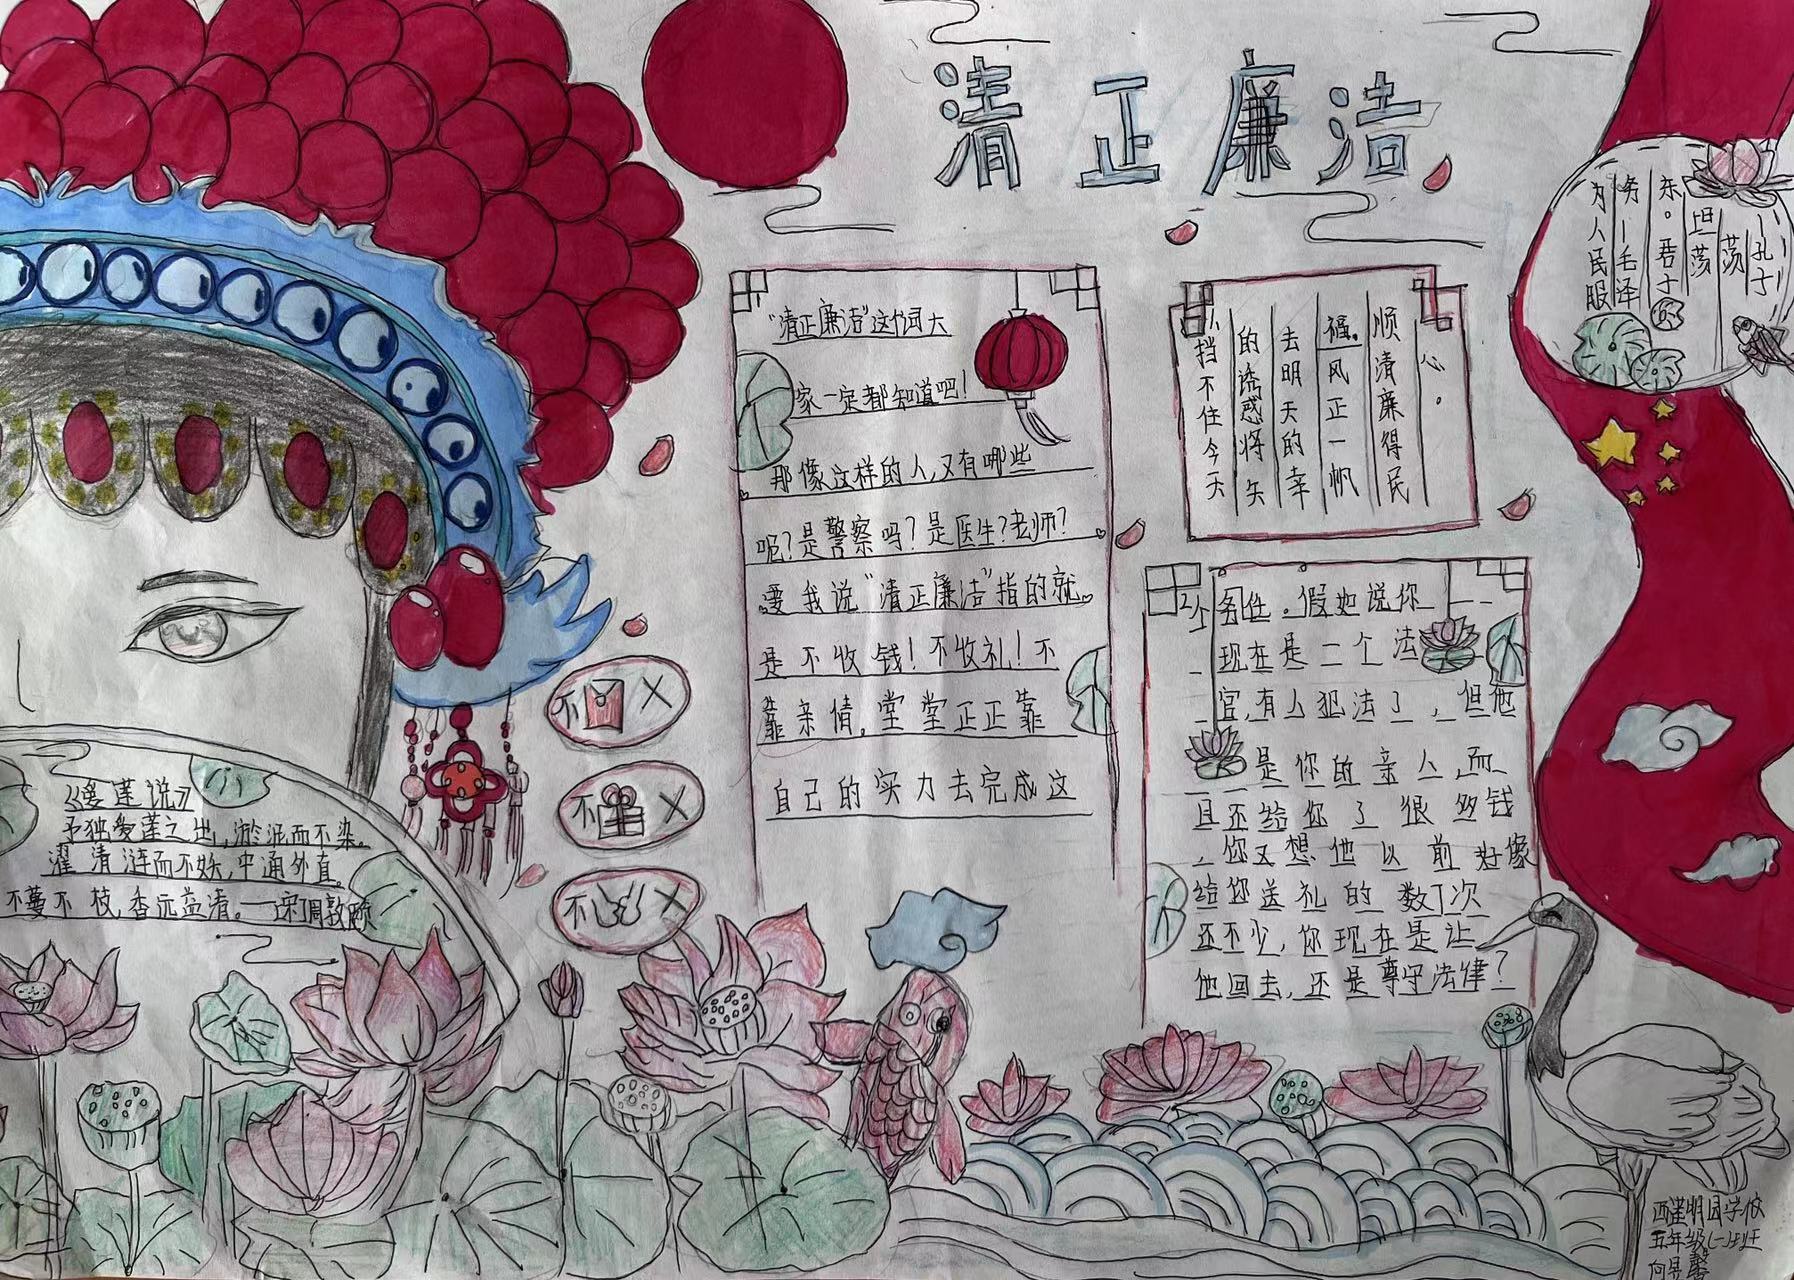 清正廉洁
为人民服
务—毛泽
东。君子
坦荡
荡
—孔子
"清正廉洁"这个词大
家一定都知道吧!
那像这样的人,又有哪些
呢?是警察吗?是医生?老师?
要我说"清正廉洁"指的就
是不收钱!不收礼!不
靠亲情。堂堂正正靠
自己的实力去完成这
挡不住今天
的诱惑将失
去明天的幸
福。风正一帆
顺清廉得民
心。
个务任。假如说你
现在是一个法
官,有人犯法了,但他
是你的亲人,而
且还给你了很多钱
,你又想他以前好像
给你送礼的数次
还不少,你现在是让
他回去,还是尊守法律?
不 X
不 X
不 X
《爱莲说》
予独爱莲之出,淤泥而不染。
濯清涟而不妖,中通外直。
不蔓不枝,香远益清。——宋周敦颐
明园学校
五年级(一)班